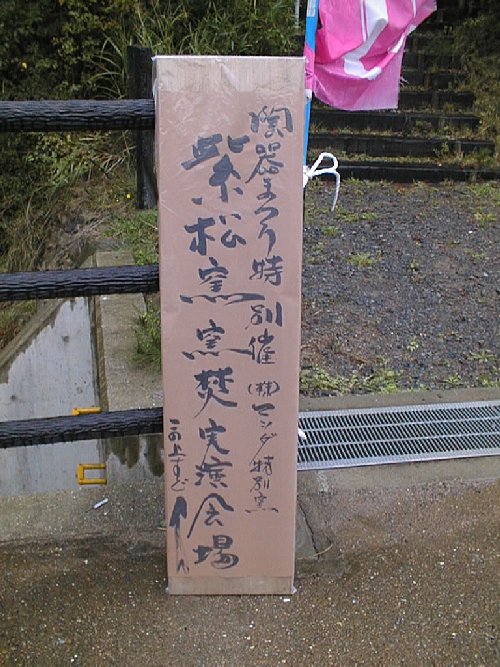 陶器まつり特別催(株)マツダ特別窯
紫松窯窯焚実演会場
この上すぐ